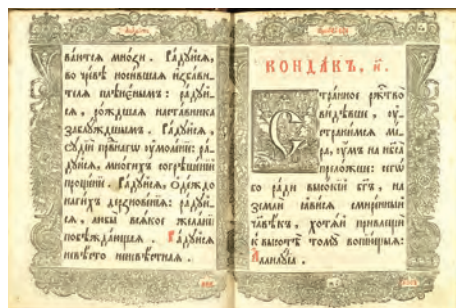 ваются мно́зи . Ра́дуйся,
во чре́вѣ носи́вшая и҆зба́ви-
теля плѣне́нымъ : ра́дуй-
ся , ро́ждшая наста́вника
заблу́ждшымъ . Ра́дуйся ,
судїи̑ пра́вагѡ ᲂу҆моле́нїе : ра́-
дуйся, мно́гихъ согрѣше́нїй
проще́нїе . Ра́дуйся, ѻ҆де́ждо
наги́хъ дерзнове́нїѧ : ра́дуй-
ся , любы̀ всѧ́кое жела́нїе
побѣжда́ющая . Ра́дуйся
невѣ́сто неневѣ́стная .
КОНДА́КЪ, и҃.
Стра́нное рж҃тво̀
ви́дѣвше , ᲂу҆-
страни́мся мі́-
ра, ᲂу҆́мъ на нб҃са̀
прело́жше : сегѡ̀
бо ра́ди высо́кїй бг҃ъ , на
землѝ ꙗ҆ви́ся смире́нный
чл҃вѣ́къ , хотѧ́й привлещѝ
къ высотѣ̀ томꙋ̀ вопїю́щыя :
Аллилꙋ́їа .